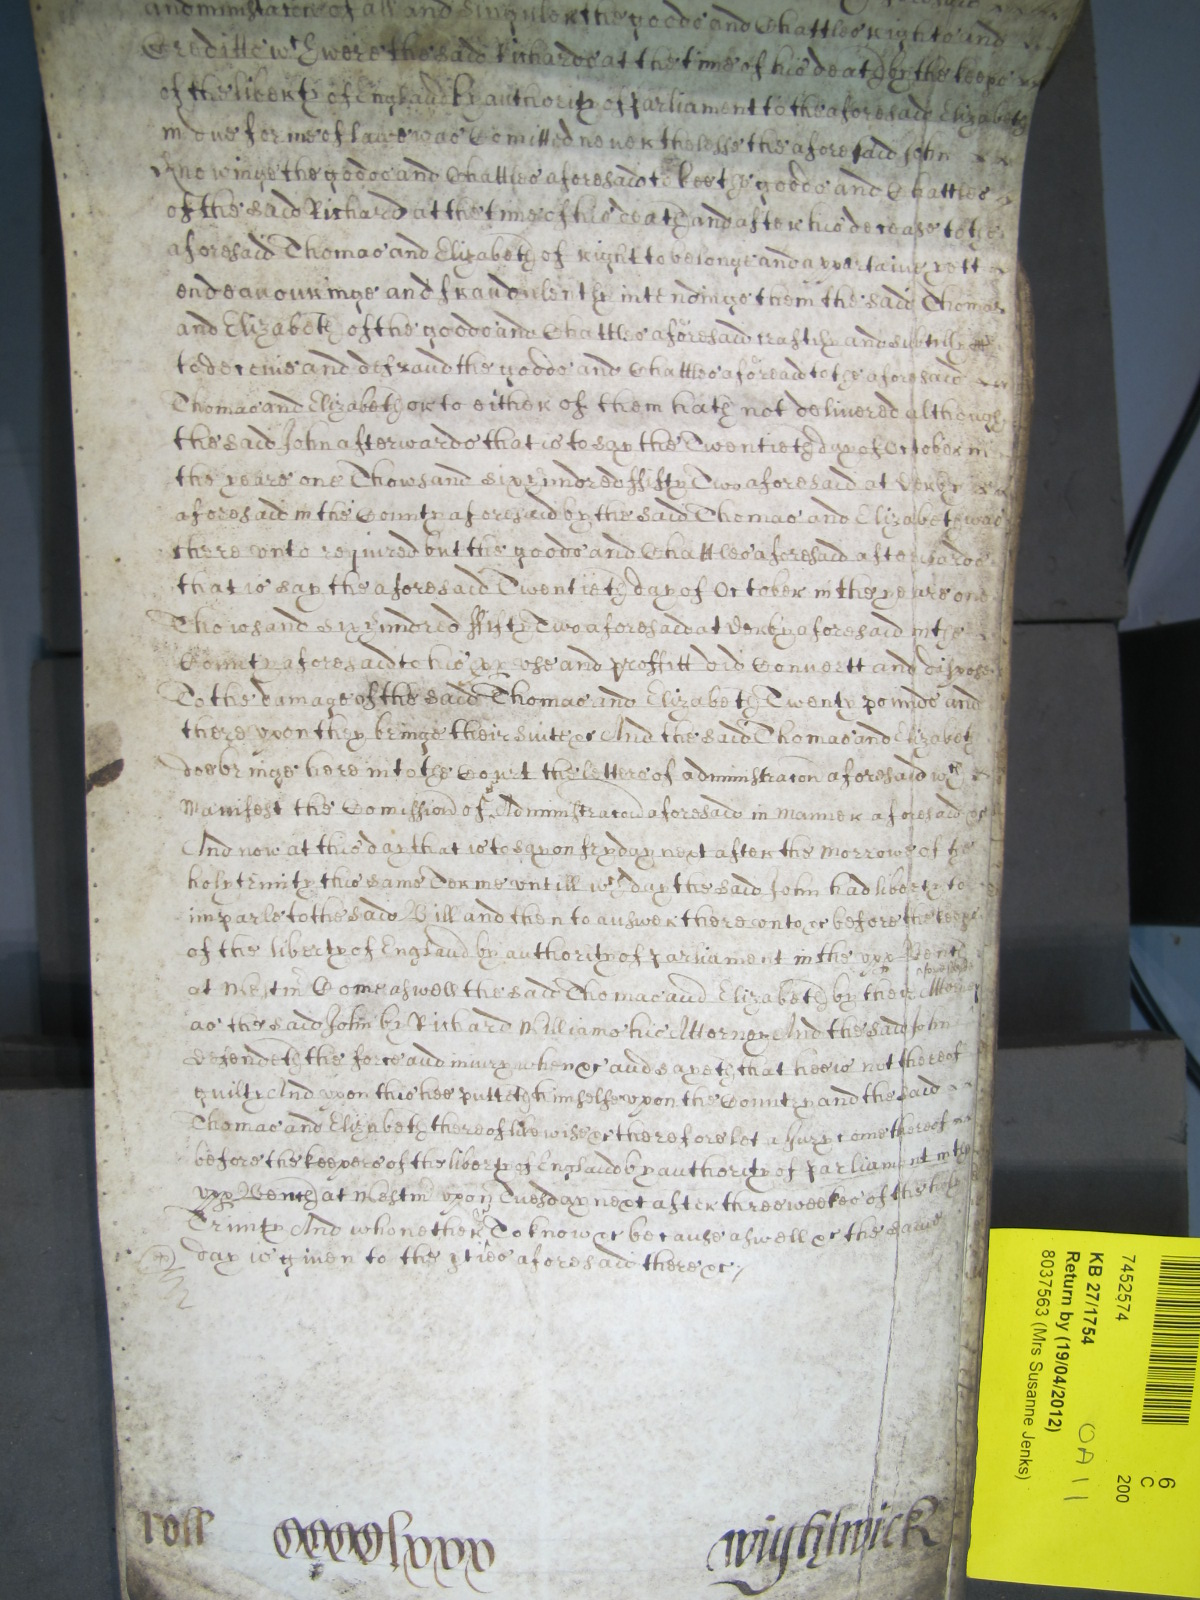 administracon of all and Singuler the goods and Chattles rights and
Creditts wch were the said Richards at the time of his death by the keeps
of the liberty of England by authority of Parliament to the aforesaid Elizabeth
in due forme of lawe was Comitted neverthelesse the aforesaid John
knowinge the goods and Chattles aforesaid to bee the goods and Chattles
of the said Richard at the time of his death and after his decease to the
aforesaid Thomas and Elizabeth of right to belonge and appertaine yett
endeavouringe and fraudulently intendinge them the said Thomas
and Elizabeth of the goods and Chattles aforesaid craftily and subtilly
to deceive and defraud the goods and Chattles aforesaid to the aforesaid
Thomas and Elizabeth or to either of them hath not delivered although
the said John afterwards that is to say the Twentieth day of October in
the yeare one Thowsand Six hundred fifty Two aforesaid at Derby
aforesaid in the County aforesaid by the said Thomas and Elizabeth was
there unto required but the goods and Chattles aforesaid afterwards
that is say the aforesaid Twentieth day of October in the yeare one
Thowsand Six hundred fifty Two aforesaid at Derby aforesaid in the
County aforesaid to his pp use and proffitt did Convertt and dispose
To the damage of the said Thomas and Elizabeth Twenty pounds and
there upon they bringe their Suite &c And the said Thomas and Elizabeth
doe bringe here into the Court the letters of administracon aforesaid wch
Manifest the Comission of Administracon aforesaid in Manner aforesaid &c
And now at this day that is to say on fryday next after the Morrowe of the
holy trinity this same Terme untill wch day the said John had liberty to
imparle to the said Bill and then to answer there unto &c before the keeps
of the liberty of England by authority of parliament in the upp Bench
at Westmr Come aswell the said Thomas and Elizabeth by their Attorney aforesaid
as the said John by Richard Williams his Attorney And the said John
defendeth the force and iniury when &c and sayeth that hee is not thereof
guilty And upon this hee putteth himselfe upon the Country and the said
Thomas and Elizabeth thereof likewise &c therefore let a Jury come thereof
before the keepers of the liberty of England by authority of parliament in the
upp Bench at Westmr upon Tuesday next after three weekes of the holy
Trinity And who nether To know &c because aswell &c the same
day is given to the pties aforesaid there &c
roll
wightwick
6
C
200
7452574
KB 27/1754
Return by (19/04/2012)
8037563 (Mrs Susanne Jenks)